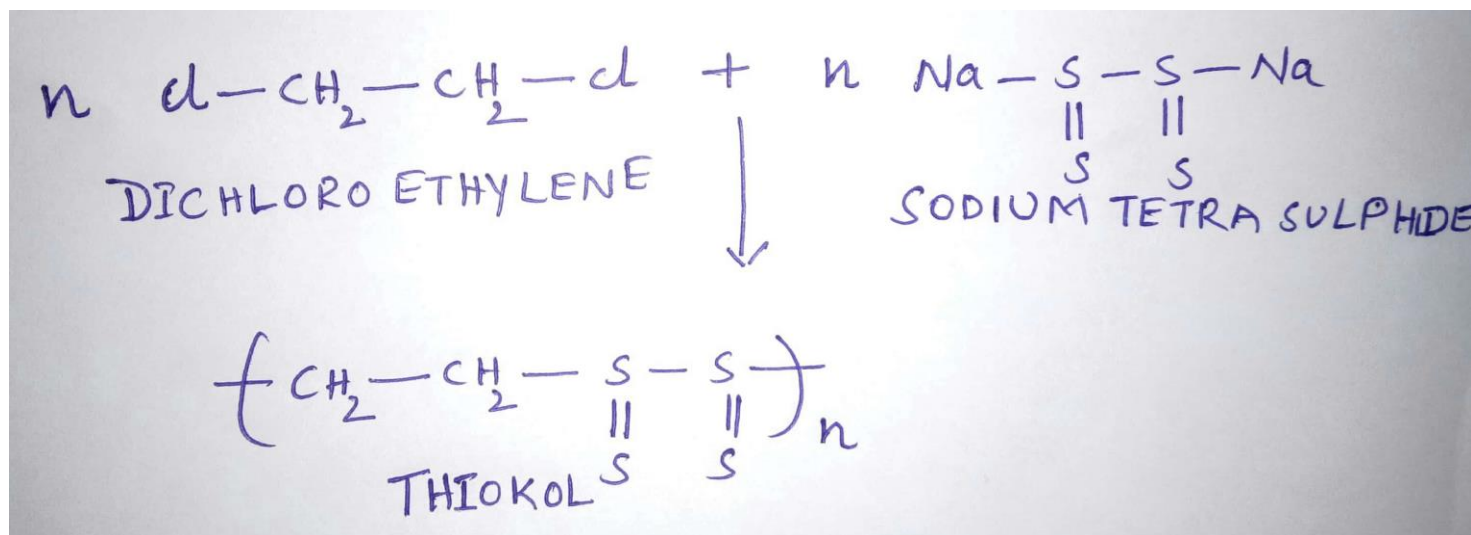 n Cl—CH₂—CH₂—Cl + n Na—S—S—Na
|| ||
S S
DICHLORO ETHYLENE
SODIUM TETRA SULPHIDE
(CH₂—CH₂—S—S)n
|| ||
S S
THIOKOL